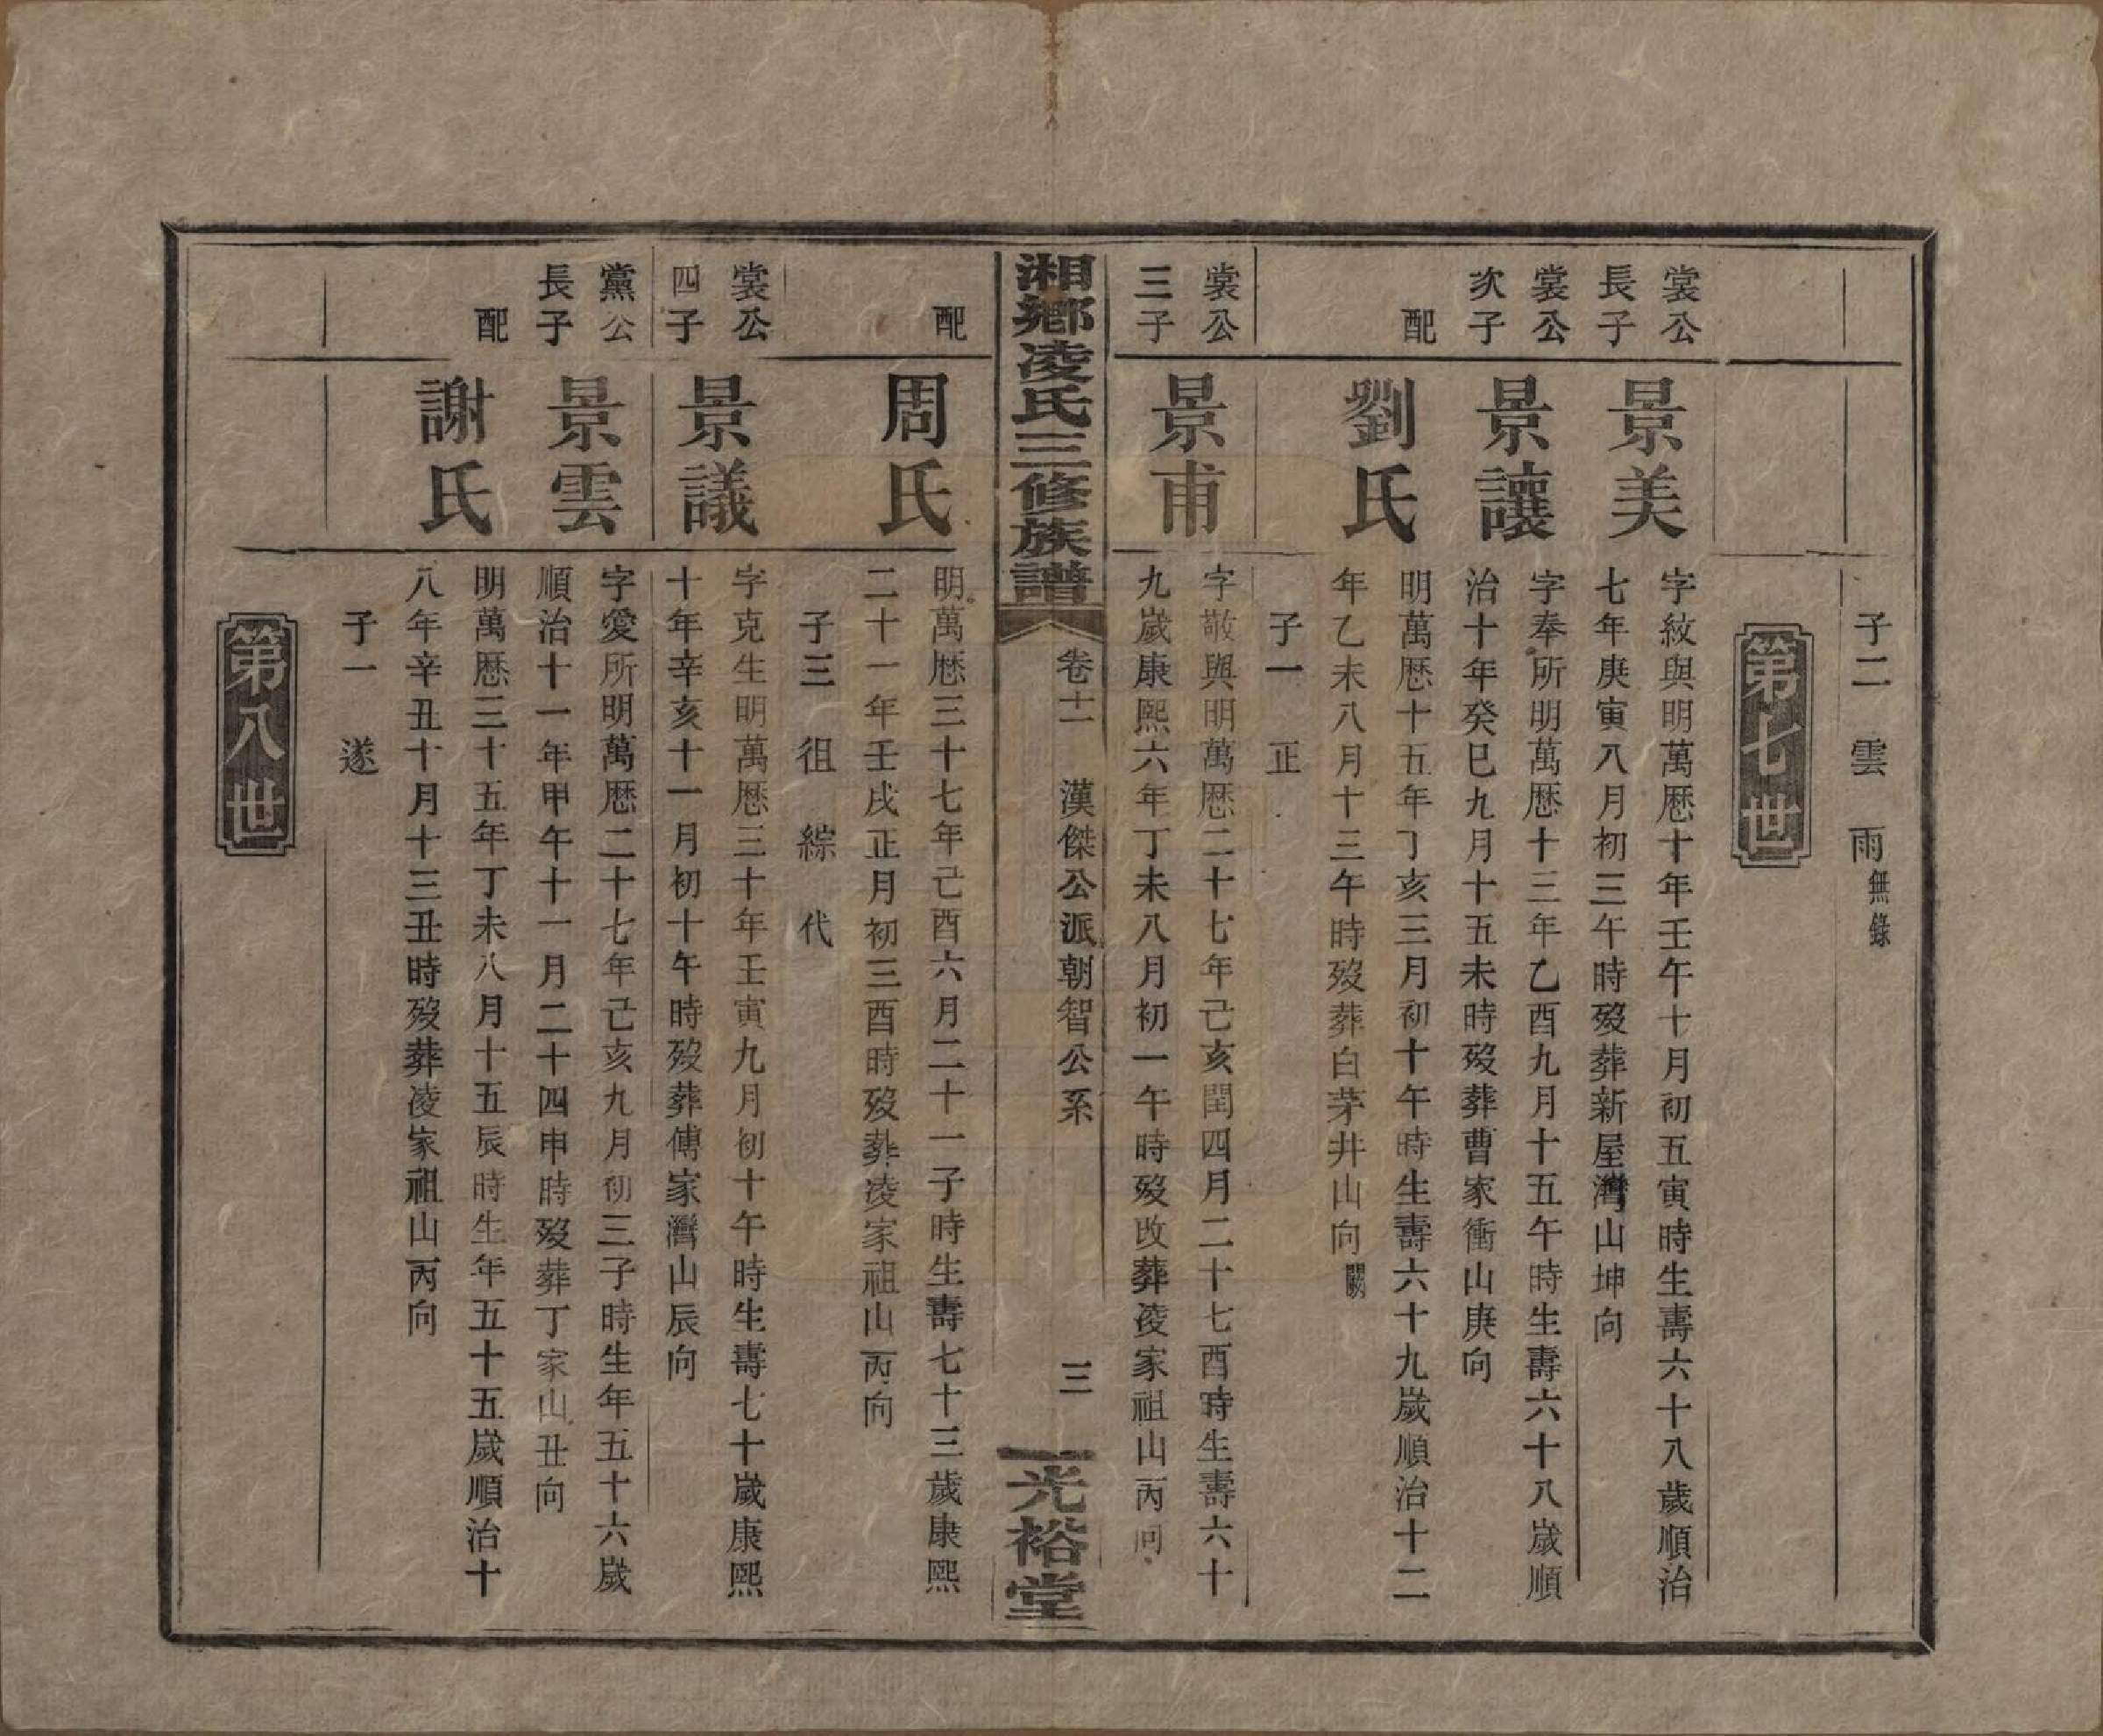 子二 雲 雨 無錄
第七世
裳公
長子
景美
字紋與明萬歷十年壬午十月初五寅時生壽六十八歲順治
七年庚寅八月初三午時歿葬新屋灣山坤向
裳公
次子
景讓
字奉所明萬歷十三年乙酉九月十五午時生壽六十八歲順
治十年癸巳九月十五未時歿葬曹家衝山庚向
配
劉氏
明萬歷十五年丁亥三月初十午時生壽六十九歲順治十二
年乙未八月十三午時歿葬白茅井山向闕
子一 正
裳公
三子
景甫
字敬與明萬歷二十七年己亥閏四月二十七酉時生壽六十
九歲康熙六年丁未八月初一午時歿改葬凌家祖山丙向
湘鄉凌氏三修族譜
卷十一 漢傑公派朝智公系
三
光裕堂
配
周氏
明萬歷三十七年己酉六月二十一子時生壽七十三歲康熙
二十一年壬戌正月初三酉時歿葬凌家祖山丙向
子三 徂 綜 代
裳公
四子
景議
字克生明萬歷三十年壬寅九月初十午時生壽七十歲康熙
十年辛亥十一月初十午時歿葬傅家灣山辰向
黨公
長子
景雲
字愛所明萬歷二十七年己亥九月初三子時生年五十六歲
順治十一年甲午十一月二十四申時歿葬丁家山丑向
配
謝氏
明萬歷三十五年丁未八月十五辰時生年五十五歲順治十
八年辛丑十月十三丑時歿葬凌家祖山丙向
子一 遂
第八世